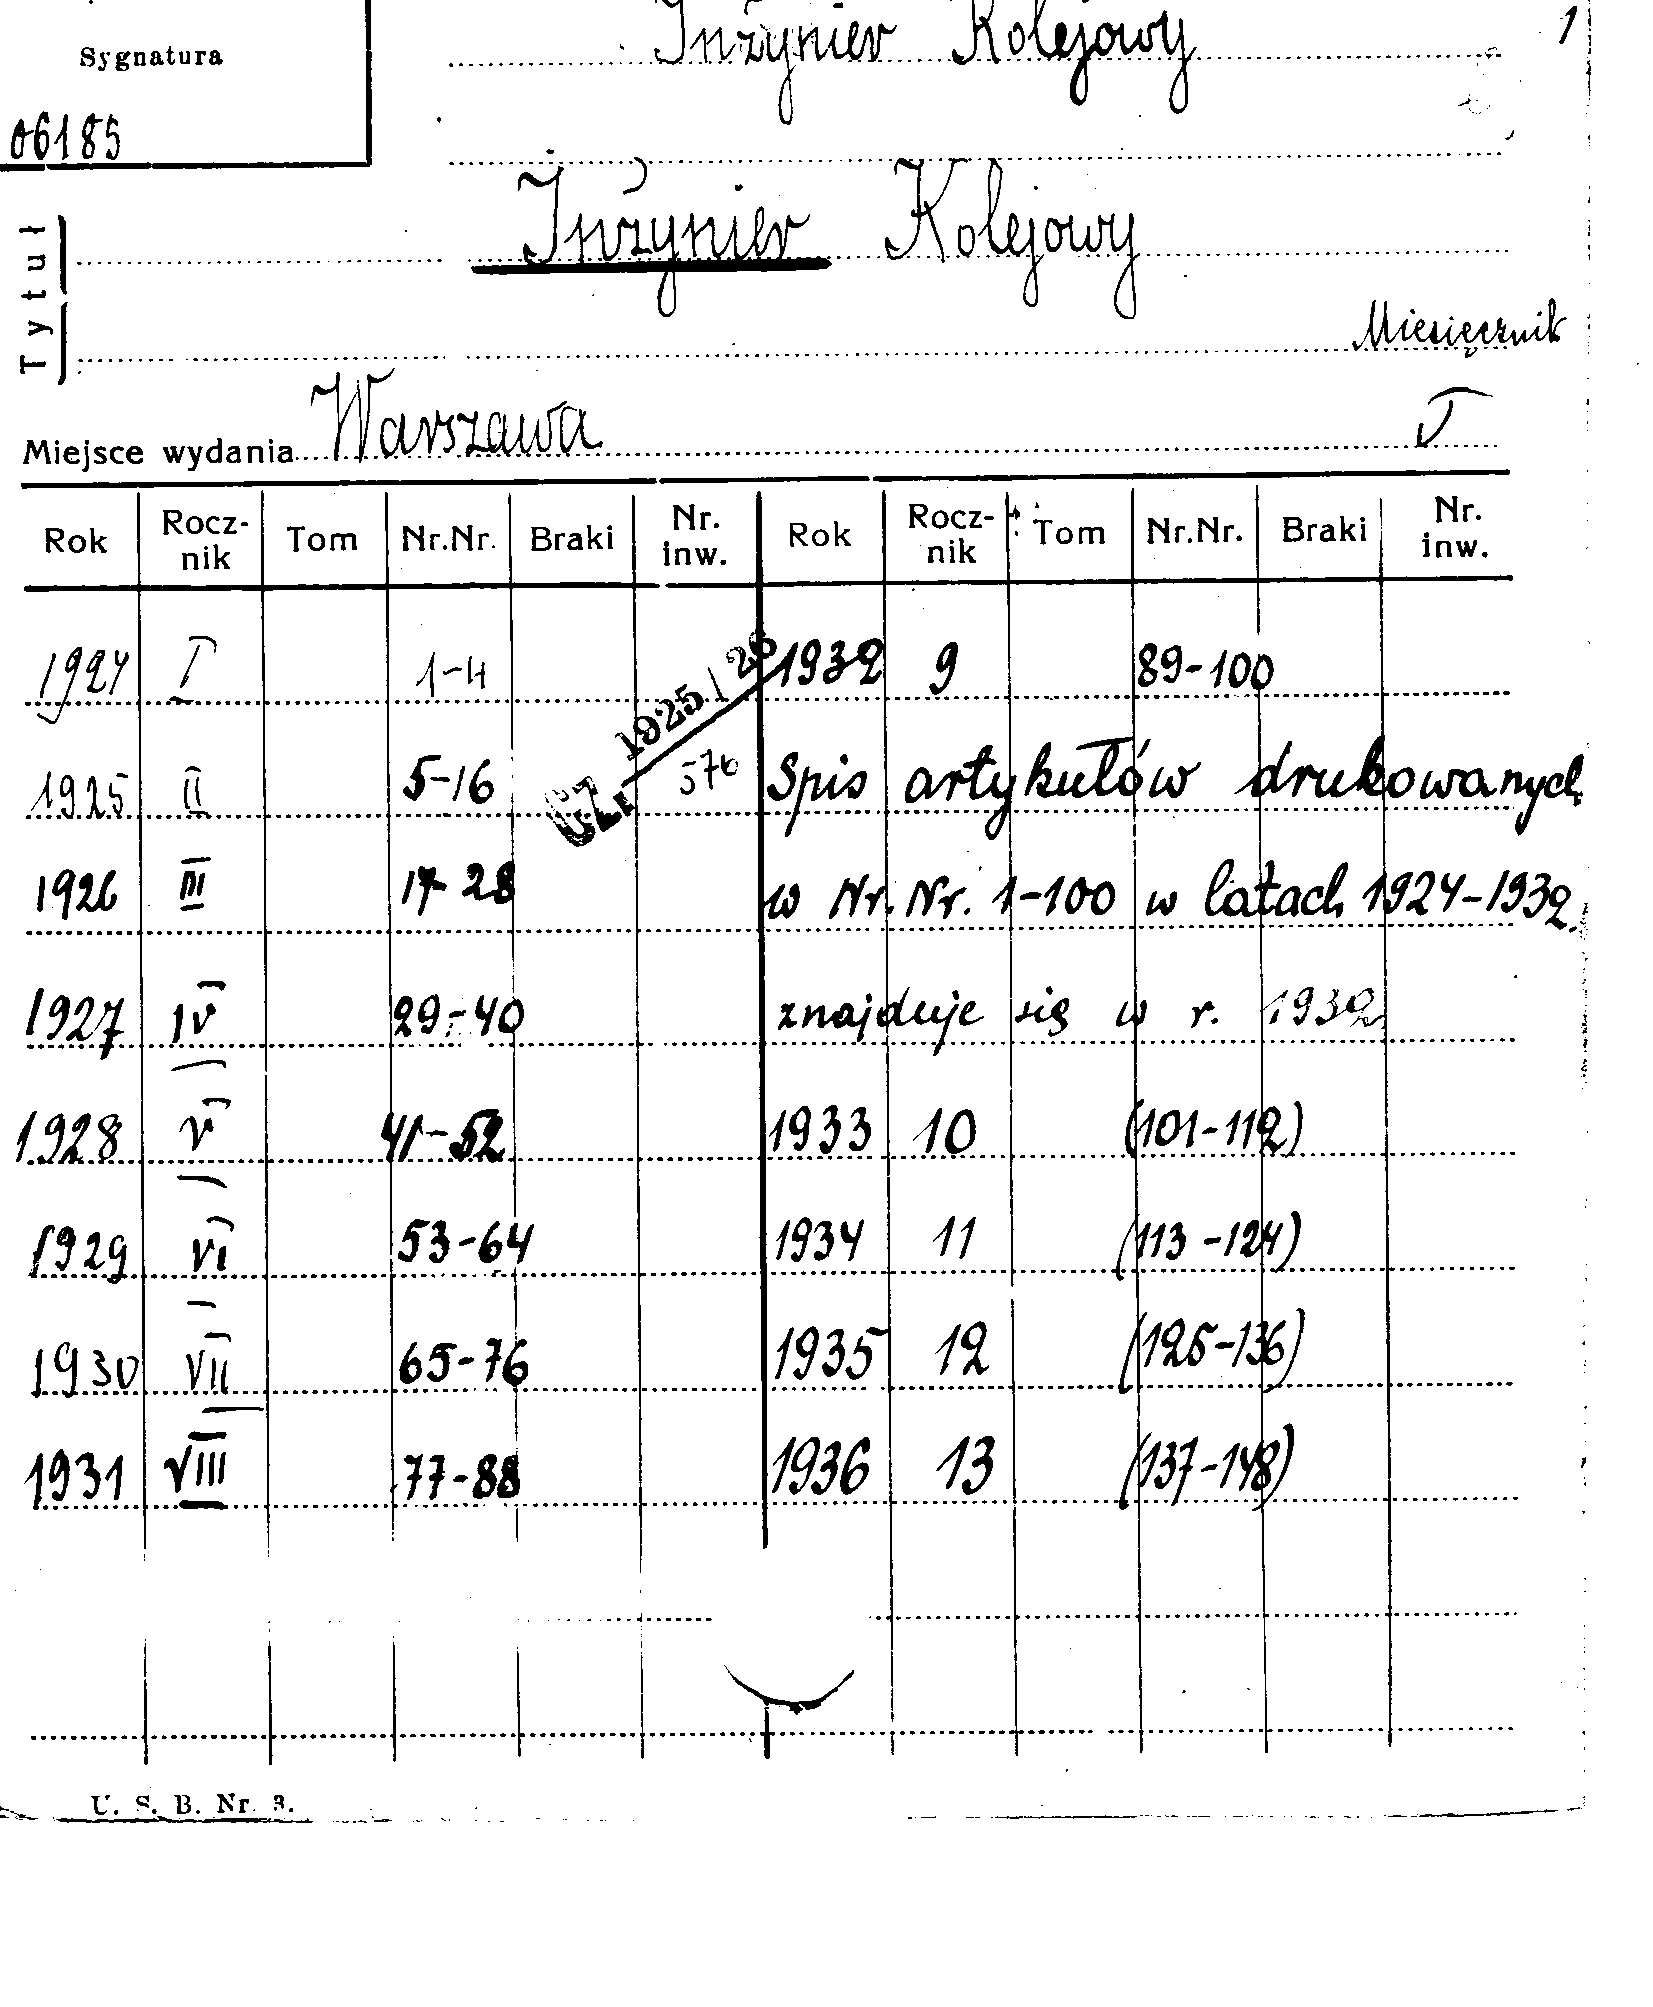 Inżynier Kolejowy 1
Sygnatura
06185
Tytuł
Inżynier Kolejowy
Miesięcznik
Miejsce wydania Warszawa
Rok Rocz-nik Tom Nr.Nr. Braki Nr. inw. Rok Rocz-nik Tom Nr.Nr. Braki Nr. inw.
1924 I 1-4 1932 9 89-100
CZ. 1925/26
1925 II 5-16 576 Spis artykułów drukowanych
1926 III 17-28 w Nr.Nr. 1-100 w latach 1924-1932.
1927 IV 29-40 znajduje się w r. 1932
1928 V 41-52 1933 10 (101-112)
1929 VI 53-64 1934 11 (113-124)
1930 VII 65-76 1935 12 (125-136)
1931 VIII 77-88 1936 13 (137-148)
U. S. B. Nr. 3.